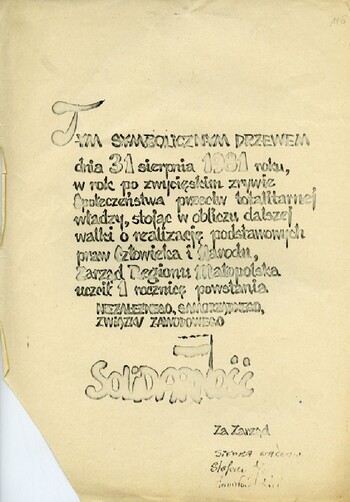 116
TYM SYMBOLICZNYM DRZEWEM
dnia 31 sierpnia 1981 roku,
w rok po zwycięskim zrywie
Społeczeństwa przeciw totalitarnej
władzy, stojąc w obliczu dalszej
walki o realizację podstawowych
praw Człowieka i Narodu,
Zarząd Regionu Małopolska
uczcił 1 rocznicę powstania
NIEZALEŻNEGO, SAMORZĄDNEGO,
ZWIĄZKU ZAWODOWEGO
SOLIDARNOŚĆ
Za Zarząd